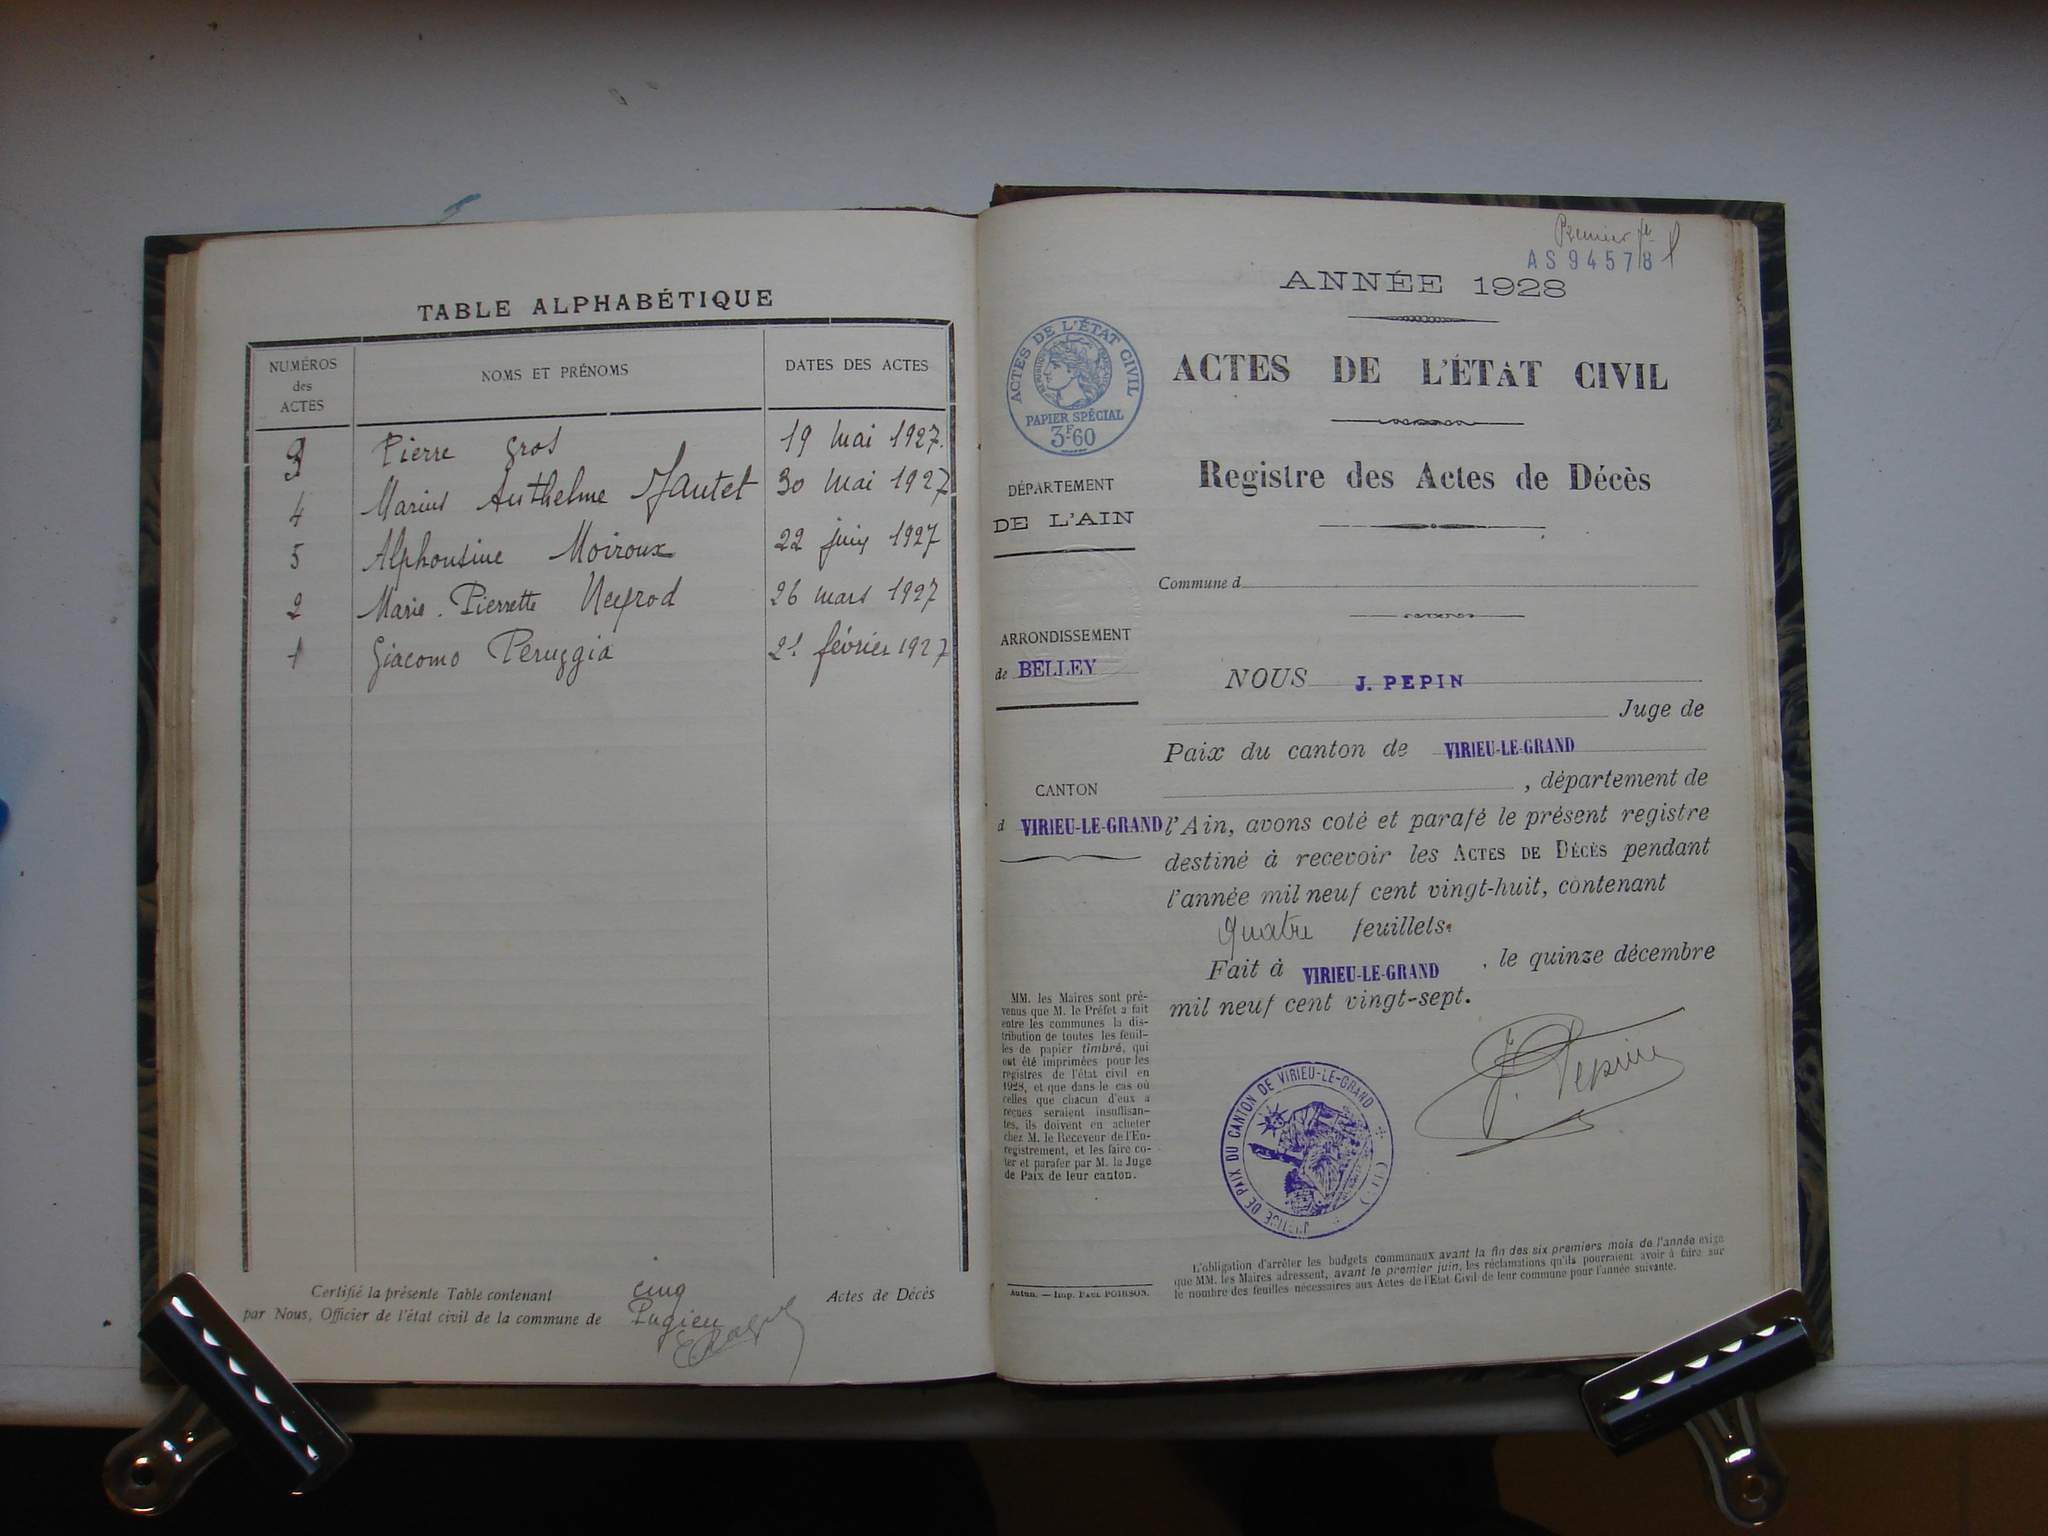 TABLE ALPHABÉTIQUE
NUMÉROS des ACTES NOMS ET PRÉNOMS DATES DES ACTES
3 Pierre Gros 19 Mai 1927.
4 Marius Anthelme Jautet 30 Mai 1927
5 Alphonsine Moiroux 22 juin 1927
2 Marie-Pierrette Neyrod 26 mars 1927
1 Giacomo Peruggia 21 février 1927
Certifié la présente Table contenant cinq Actes de Décès
par Nous, Officier de l'état civil de la commune de Pugieu
Premier
AS 94578
ANNÉE 1928
ACTES DE L'ÉTAT CIVIL
PAPIER SPÉCIAL
3F.60
ACTES DE L'ÉTAT CIVIL
Registre des Actes de Décès
DÉPARTEMENT
DE L'AIN
Commune d
ARRONDISSEMENT
de BELLEY
NOUS J. PEPIN
Juge de
Paix du canton de VIRIEU-LE-GRAND
, département de
CANTON
d VIRIEU-LE-GRAND
l'Ain, avons coté et parafé le présent registre
destiné à recevoir les ACTES DE DÉCÈS pendant
l'année mil neuf cent vingt-huit, contenant
quatre feuillets.
Fait à VIRIEU-LE-GRAND, le quinze décembre
mil neuf cent vingt-sept.
MM. les Maires sont pré-
venus que M. le Préfet a fait
entre les communes la dis-
tribution de toutes les feuil-
les de papier timbré, qui
ont été imprimées pour les
registres de l'état civil en
1928, et que dans le cas où
celles que chacun d'eux a
reçues seraient insuffisan-
tes, ils doivent en acheter
chez M. le Receveur de l'En-
registrement, et les faire co-
ter et parafer par M. le Juge
de Paix de leur canton.
J. Pepin
JUSTICE DE PAIX DU CANTON DE VIRIEU-LE-GRAND
L'obligation d'arrêter les budgets communaux avant la fin des six premiers mois de l'année exige
que MM. les Maires adressent, avant le premier juin, les réclamations qu'ils pourraient avoir à faire sur
le nombre des feuilles nécessaires aux Actes de l'Etat Civil de leur commune pour l'année suivante.
Autun. — Imp. PAUL POIRSON.